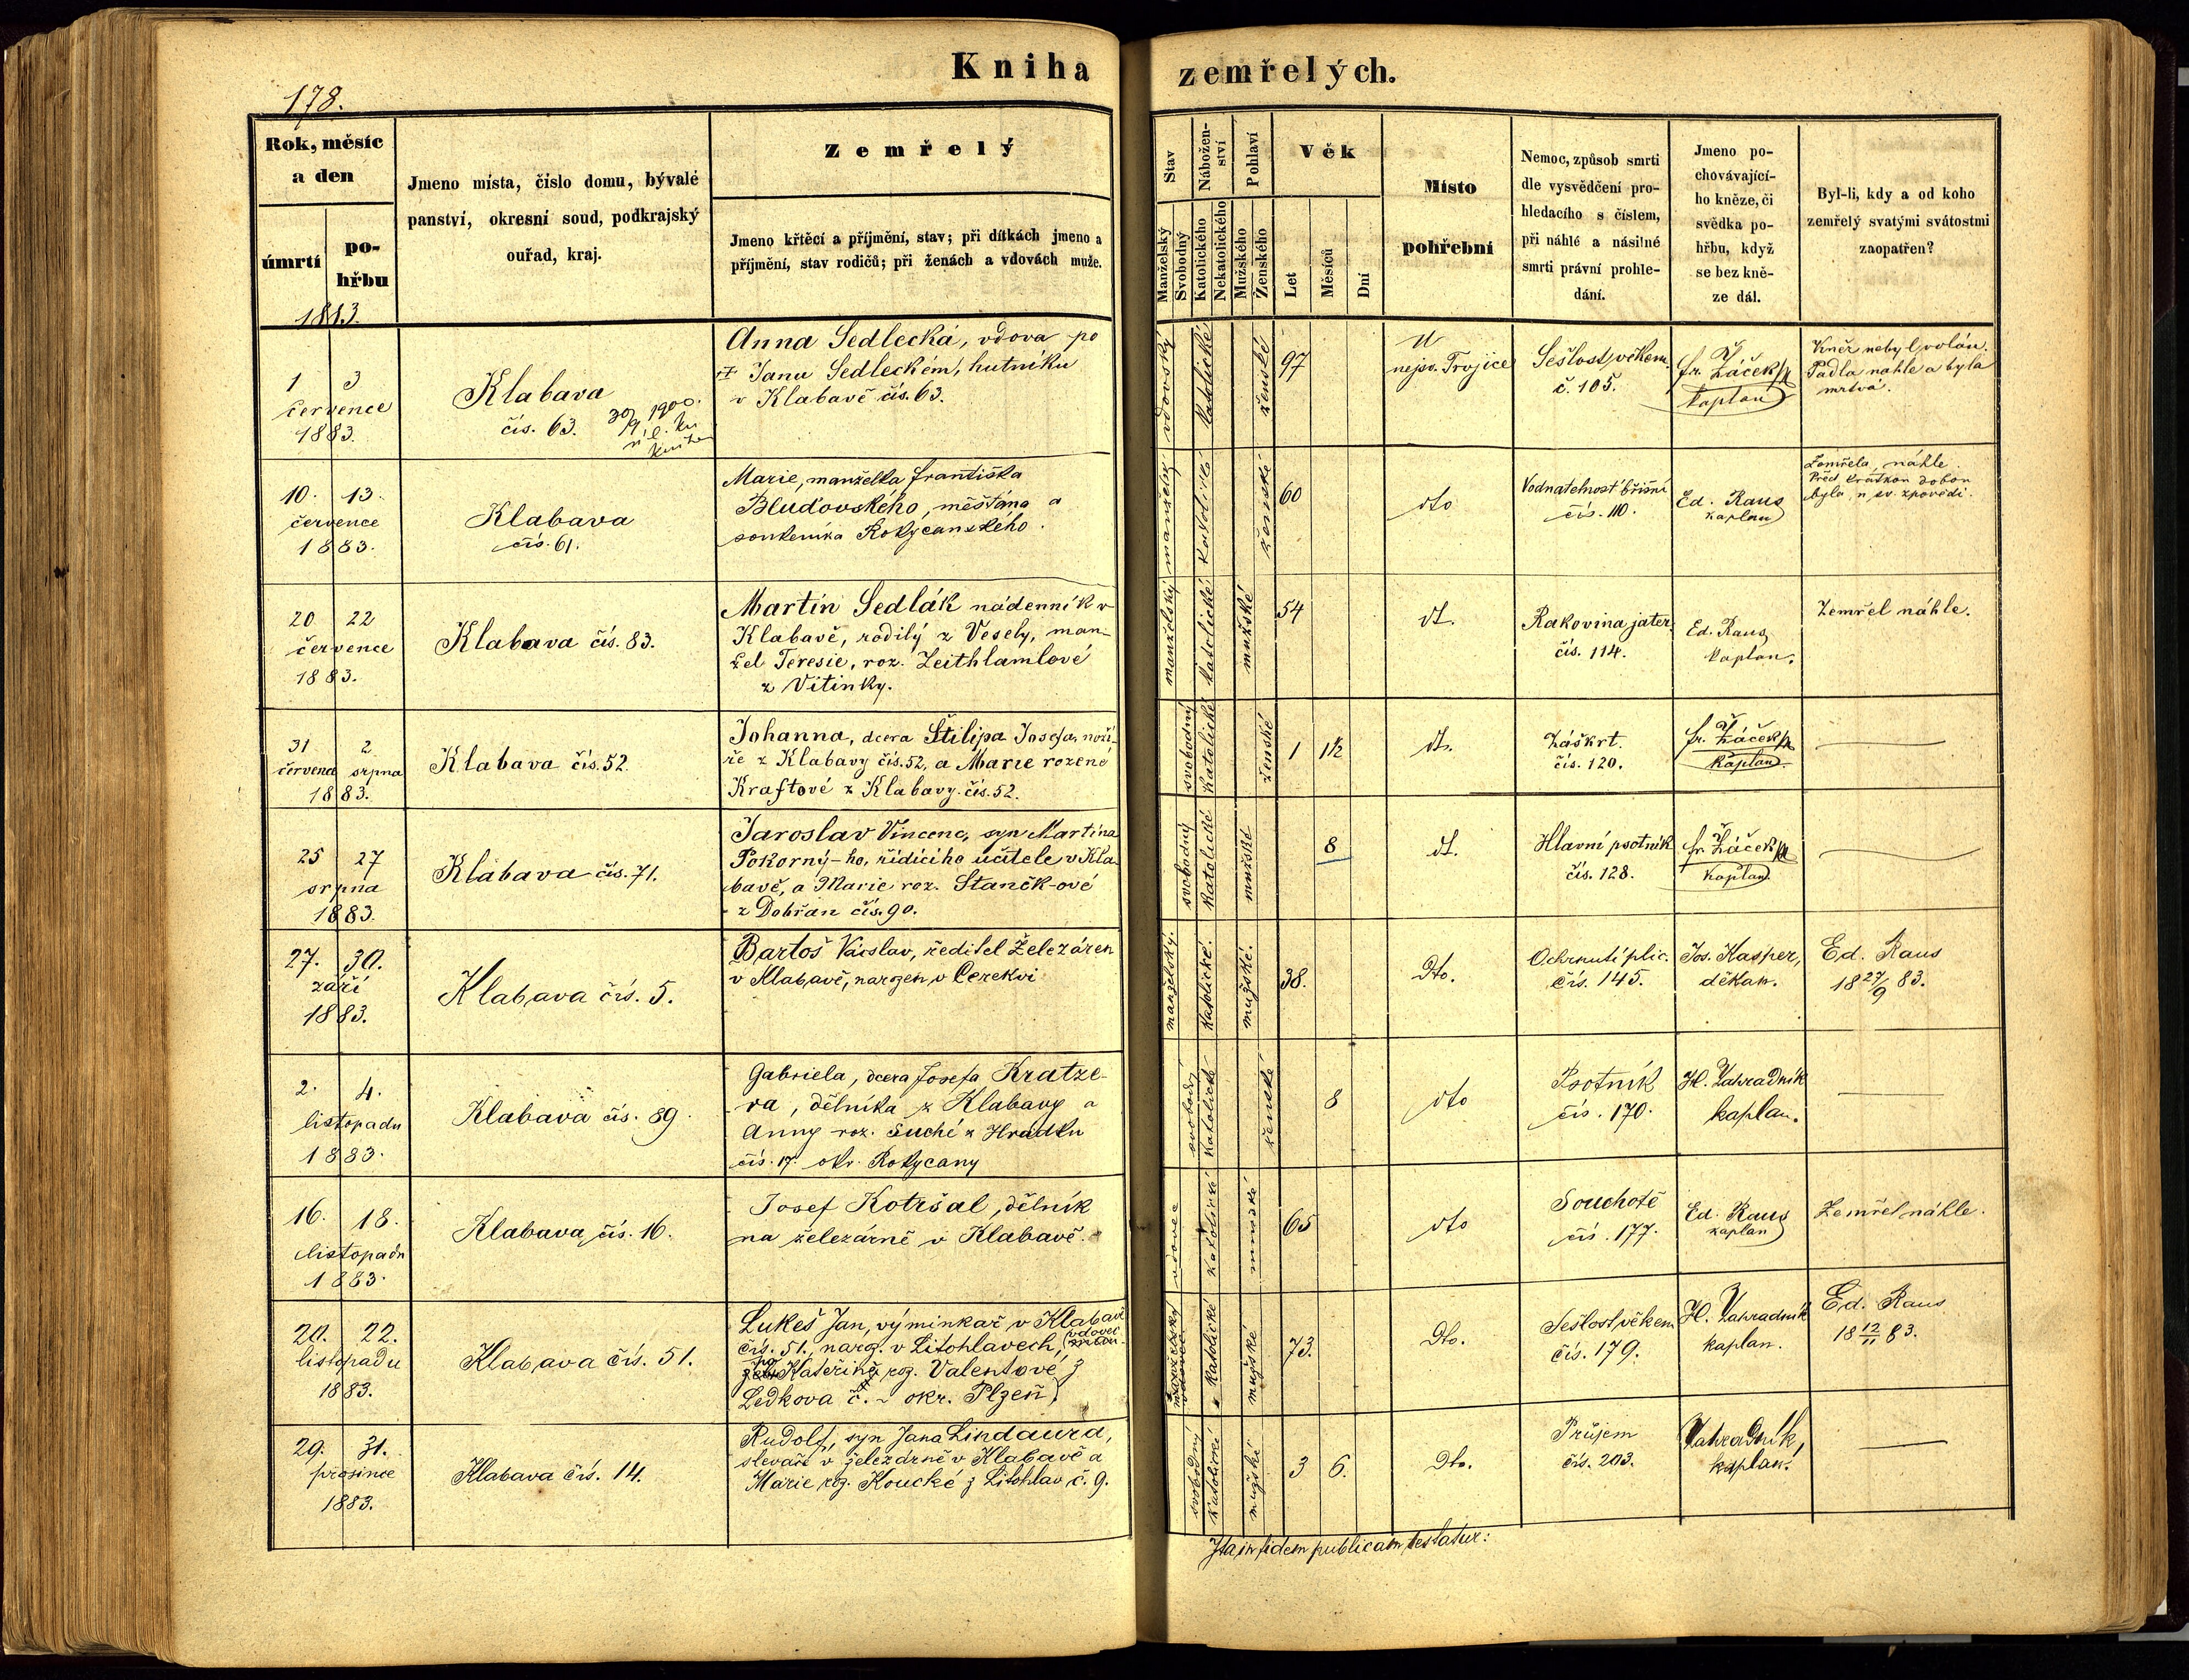 Kniha zemřelých.
178.
Rok, měsíc
a den
úmrtí
po-
hřbu
Jmeno místa, číslo domu, bývalé
panství, okresní soud, podkrajský
ouřad, kraj.
Zemřelý
Jmeno křtěcí a příjmění, stav; při dítkách jmeno a
příjmění, stav rodičů; při ženách a vdovách muže.
Stav
Manželský
Svobodný
Nábožen-
ství
Katolického
Nekatolického
Pohlaví
Mužského
Ženského
Věk
Let
Měsíců
Dní
Místo
pohřební
Nemoc, způsob smrti
dle vysvědčení pro-
hledacího s číslem,
při náhlé a násilné
smrti právní prohle-
dání.
Jmeno po-
chovávající-
ho kněze, či
svědka po-
hřbu, když
se bez kně-
ze dál.
Byl-li, kdy a od koho
zemřelý svatými svátostmi
zaopatřen?
1883.
1 3
července
1883.
Klabava
čís. 63.
30/9 1900.
Anna Sedlecká, vdova po
Janu Sedleckém, hutníku
v Klabavě čís. 63.
vdovský
katolické
ženské
97
U
nejsv. Trojice
Sešlost věkem
č. 105.
Fr. Žáček
kaplan
Kněz nebyl volán.
Padla náhle a byla
mrtvá.
10. 13.
července
1883.
Klabava
čís. 61.
Marie, manželka Františka
Bluďovského, měšťana a
soukeníka Rokycanského.
manželský
katolické
ženské
60
dto
Vodnatelnost břišní
čís. 110.
Ed. Raus
kaplan
Zemřela náhle.
Před krátkou dobou
byla u sv. zpovědi.
20 22
července
1883.
Klabava čís. 83.
Martin Sedlák nádenník v
Klabavě, rodilý z Vesely, man-
žel Teresie, roz. Leithlamlové
z Vitinky.
manželský
katolické
mužské
54
dt.
Rakovina jater
čís. 114.
Ed. Raus
kaplan.
Zemřel náhle.
31 2
července srpna
1883.
Klabava čís. 52.
Johanna, dcera Štilipa Josefa, noží-
ře z Klabavy čís. 52, a Marie rozené
Kraftové z Klabavy čís. 52.
svobodný
katolické
ženské
1 1½
dt.
Záškrt.
čís. 120.
Fr. Žáček
kaplan.
25 27
srpna
1883.
Klabava čís. 71.
Jaroslav Vincenc, syn Martina
Pokorný-ho, řídícího učitele v Kla-
bavě, a Marie roz. Stančk-ové
z Dobřan čís. 90.
svobodný
katolické
mužské
8
dt.
Hlavní psotník
čís. 128.
Fr. Žáček
kaplan.
27. 30.
září
1883.
Klabava čís. 5.
Bartoš Václav, ředitel železáren
v Klabavě, narozen v Cerekvi
manželský.
katolické.
mužské.
38.
Dto.
Ochrnutí plic.
čís. 145.
Jos. Kasper,
děkan.
Ed. Raus
18 27/9 83.
2. 4.
listopadu
1883.
Klabava čís. 89.
Gabriela, dcera Josefa Kratze-
ra, dělníka z Klabavy a
Anny roz. Suché z Hrádku
čís. 17. okr. Rokycany
svobodný
katolické
ženské
8
dto
Psotník
čís. 170.
H. Zahradník
kaplan.
16. 18.
listopadu
1883.
Klabava čís. 16.
Josef Kotršal, dělník
na železárně v Klabavě.
vdovec
katolické
mužské
65
dto
Souchotě
čís. 177.
Ed. Raus
kaplan
Zemřel náhle.
20. 22.
listopadu
1883.
Klabava čís. 51.
Lukeš Jan, výminkář v Klabavě
čís. 51., naroz. v Litohlavech, (vdovec
po Kateřině roz. Valentové z
Ledkova č. ~ okr. Plzeň)
manželský
vdovec
katolické
mužské
73.
Dto.
Sešlost věkem
čís. 179.
H. Zahradník
kaplan.
Ed. Raus
18 12/11 83.
29. 31.
prosince
1883.
Klabava čís. 14.
Rudolf, syn Jana Lindaura,
slevače v železárně v Klabavě a
Marie roz. Koucké z Litohlav č. 9.
svobodný
katolické
mužské
3 6.
Dto.
Průjem
čís. 203.
Zahradník,
kaplan.
Ita in fidem publicam testatur: